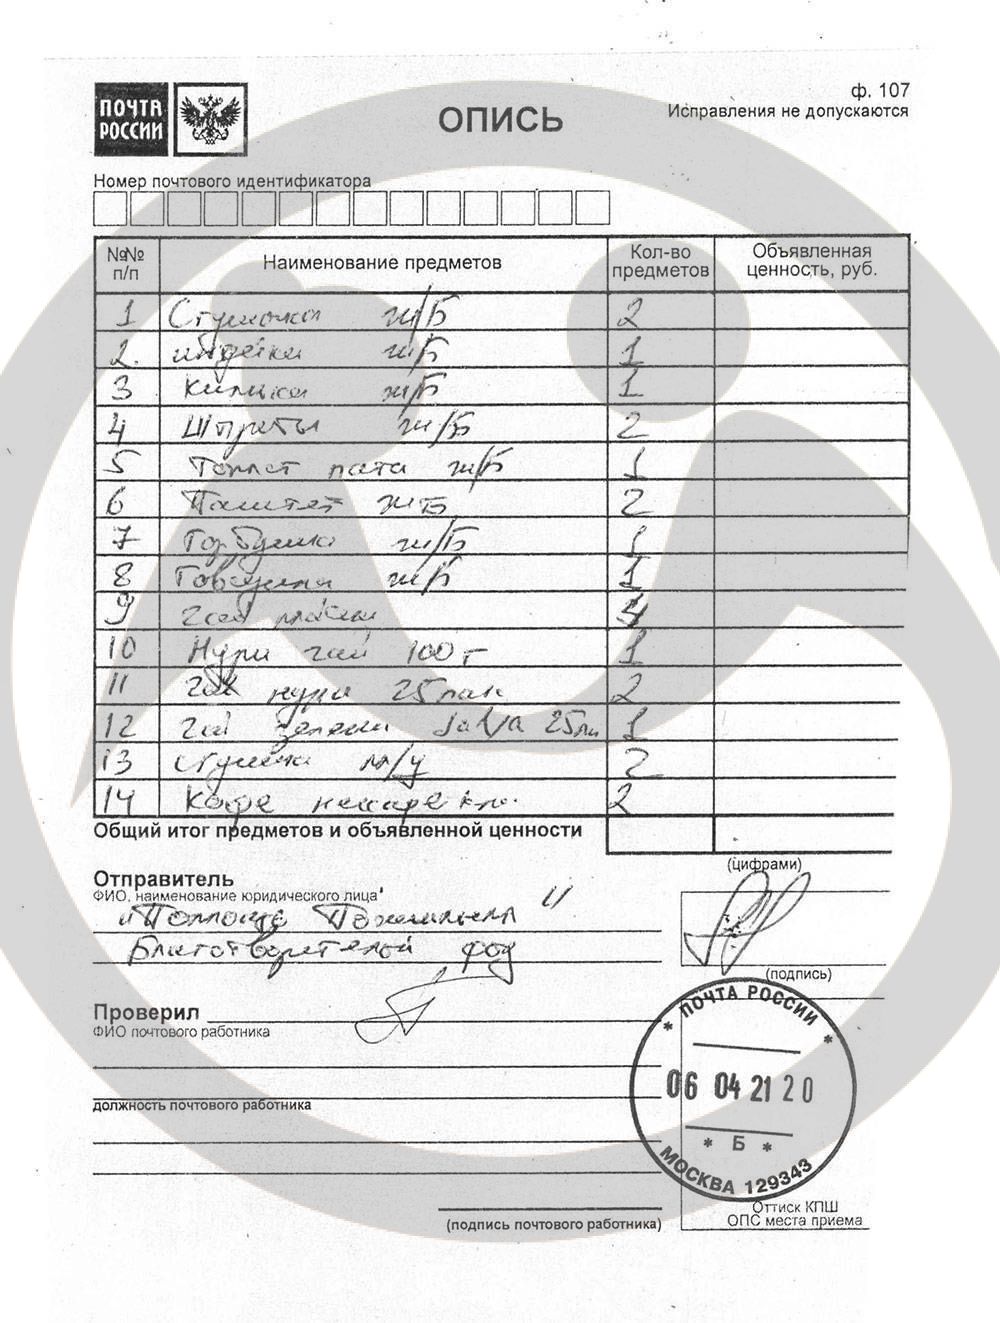 ПОЧТА
РОССИИ
ОПИСЬ
ф. 107
Исправления не допускаются
Номер почтового идентификатора
№№ п/п Наименование предметов Кол-во предметов Объявленная ценность, руб.
1 Сгущенка ж/Б 2
2. индейка ж/Б 1
3 Килька ж/Б 1
4 Шпроты ж/Б 2
5 Томат паста ж/Б 1
6 Паштет ж Б 2
7 Горбуша ж/Б 1
8 Говядина ж/Б 1
9 чай
10 Нури чай 100 г 1
11 чай нури 25 пак 2
12 чай зелени 1
13 сгущенка м/у 2
14 Кофе 2
Общий итог предметов и объявленной ценности
(цифрами)
Отправитель
ФИО, наименование юридического лица
"
Благотворителой фод
(подпись)
Проверил
ФИО почтового работника
должность почтового работника
(подпись почтового работника)
* ПОЧТА РОССИИ *
06 04 21 20
* Б *
МОСКВА 129343
Оттиск КПШ
ОПС места приема